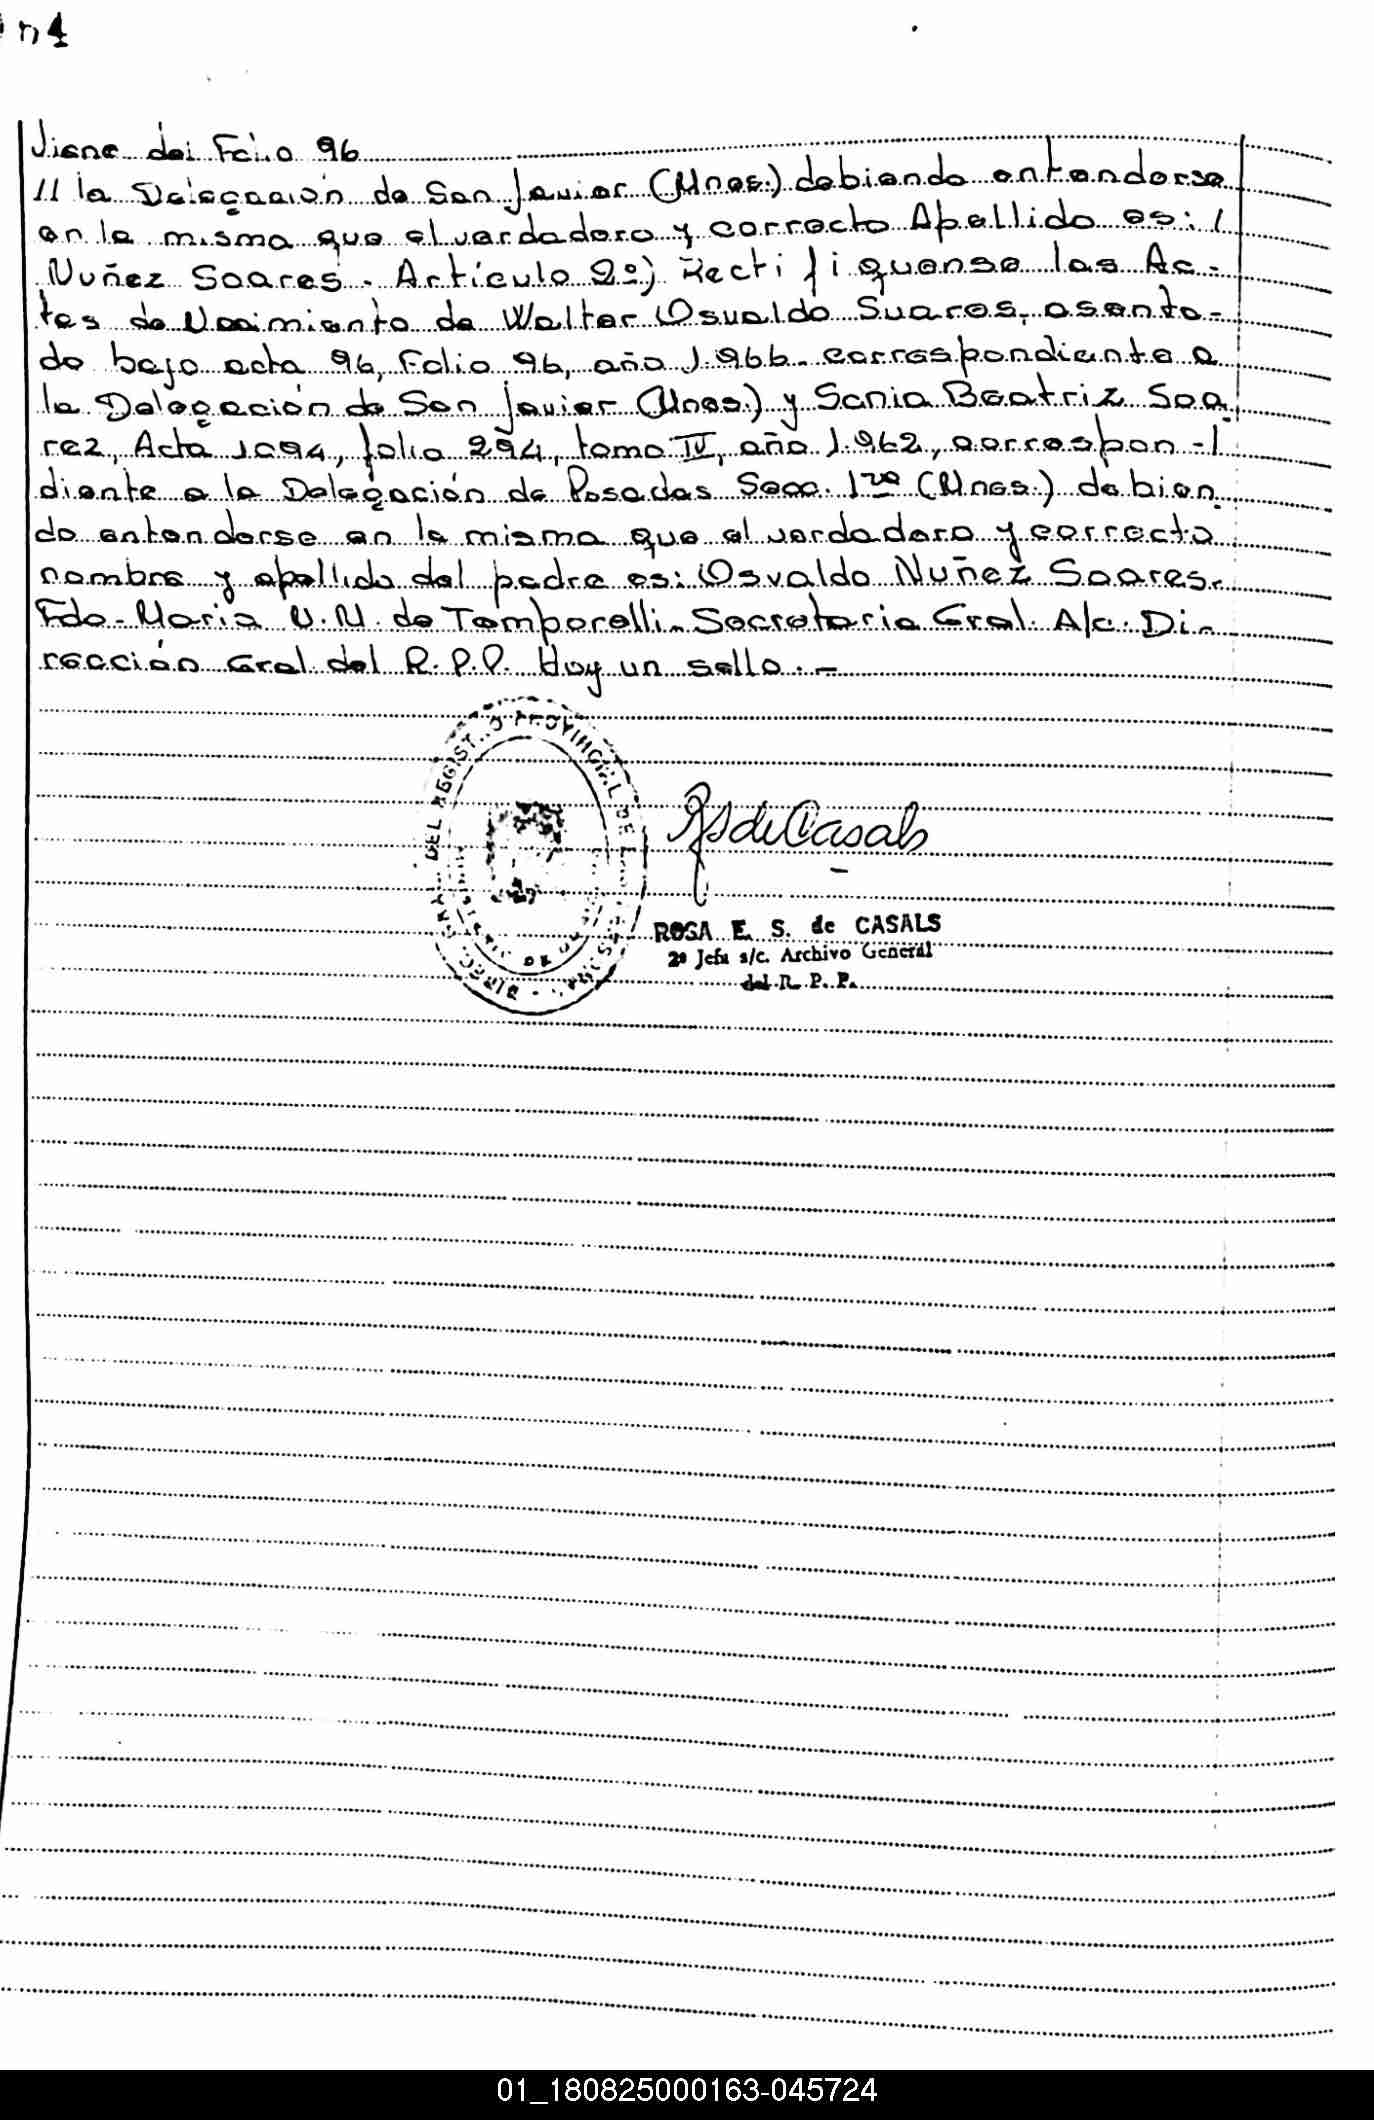 n4
Viene del Folio 96
// la Delegación de San Javier (Mnes.) debiendo entenderse
en la misma que el verdadero y correcto Apellido es: /
Nuñez Soares. Artículo 2º) Rectifiquense las Ac-
tas de Nacimiento de Walter Osvaldo Suares, asenta-
do bajo acta 96, Folio 96, año 1.966. correspondiente a
la Delegación de San Javier (Mnes.) y Sonia Beatriz Soa
rez, Acta 1094, folio 294, tomo IV, año 1.962, correspon-/
diente a la Delegación de Posadas Secc. 1ra (Mnes.) debien
do entenderse en la misma que el verdadero y correcto
nombre y apellido del padre es: Osvaldo Nuñez Soares.
Fdo. Maria N.M. de Tamporelli. Secretaria Gral. A/c. Di-
rección Gral. del R.P.P. Hay un sello.-
DIREC. GRAL. DEL REGISTRO PROVINCIAL DE LAS PERSONAS
RS de Casals
ROSA E. S. de CASALS
2º Jefa s/c. Archivo General
del R. P. P.
01_180825000163-045724